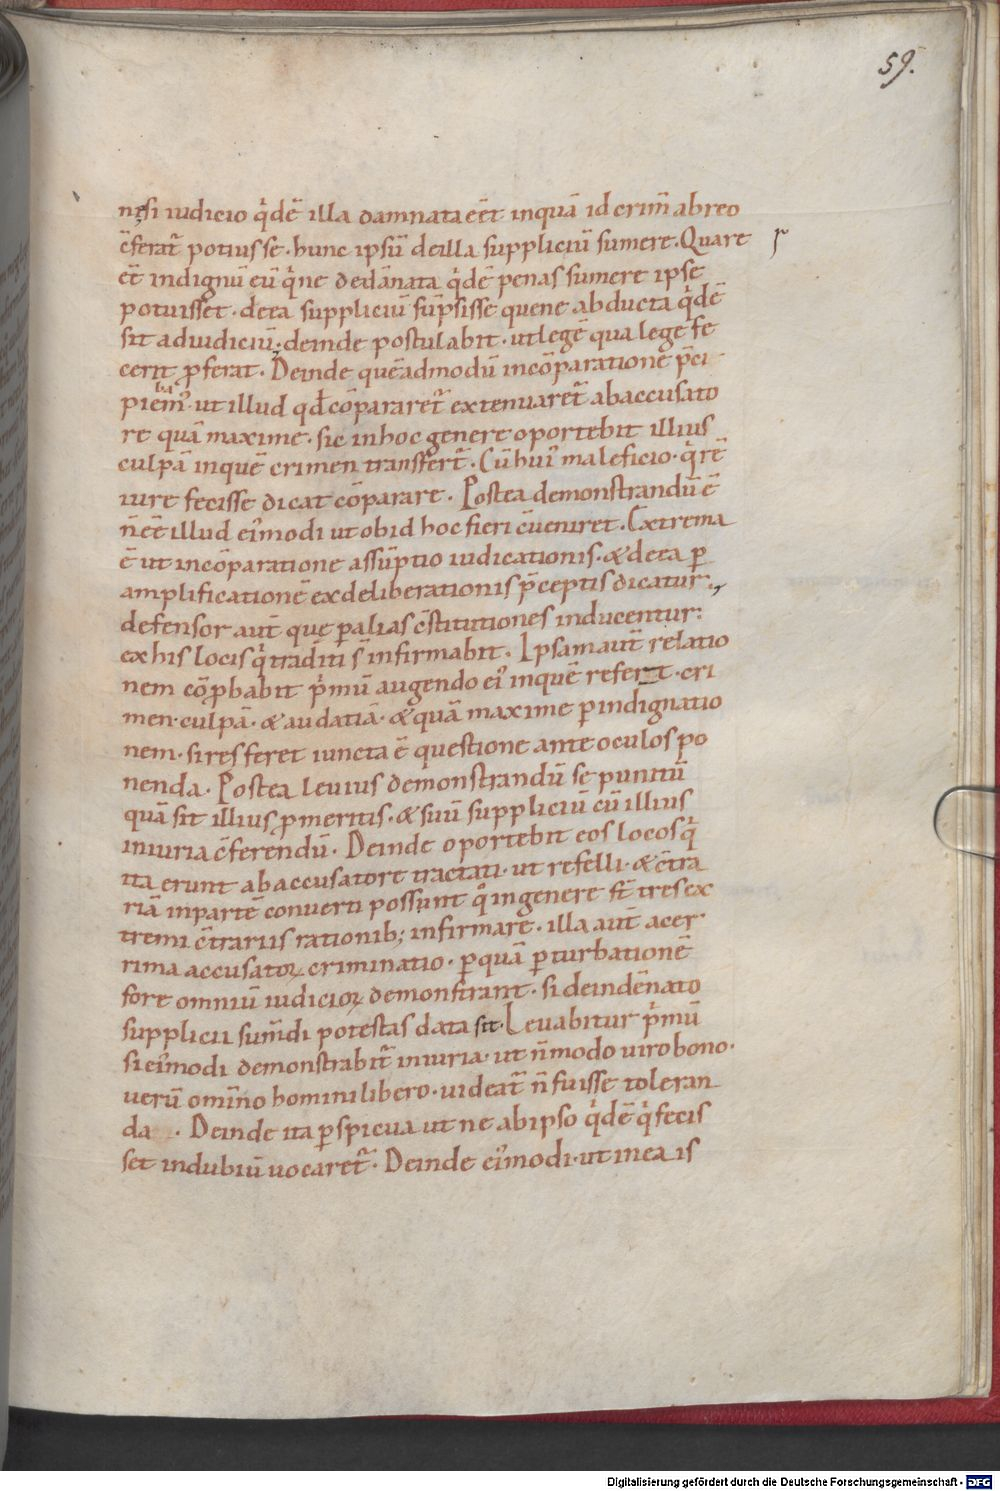 59.
nesi iudicio q̇dē illa damnata eēt inquā id crim̄ abreo
c̄feratᷣ potius se · hunc ipsū deilla suppliciū sumere. Quare
eē indignū eū q̇ ne dedānata q̇dē penas sumere ipse
potuisset · deea suppliciū sūpsisse quene abducta q̇dē
sit adiudiciū; deinde postulabit · utlegē qua lege fe
cerit ꝓferat. Deinde quēadmodū incōparatione p̄ci
piebam᾽ ut illud qđ cōpararetᷣ extenuaretᷣ abaccusato
re quā maxime · sic inhoc genere oportebit illius
culpā inquē crimen transfertᷣ. Cū hui᾽ maleficio · q̇ rē
iure fecisse dicat cōparare. Postea demonstrandū ē
n̄ eē illud ei᾽modi ut obid hoc fieri c̄ueniret. Extrema
ē ut incōparatione assūptio iudicationis · & deea ꝑ
amplificationē exdeliberationis p̄ceptis dicatur.
defensor aut̄ que ꝑ alias c̄stitutiones inducentur:
ex his locis q̇ traditi s̄ infirmabit. Ipsam aut̄ relatio
nem cōꝓbabit ṗmū augendo ei᾽ inquē refert · cri
men · culpā · & audatiā · & quā maxime ꝑ indignatio
nem · si res feret iuncta ē questione ante oculos po
nenda. Postea leuius demonstrandū se punitū
quā sit illius ꝓmeritis · & suū suppliciū cū illius
iniuria c̄ferendū. Deinde oportebit eos locos q̇
ita erunt abaccusatore tractati · ut refelli · & c̄tra
riā inpartē conuerti possunt q̇ ingenere st̄ tres ex
tremi c̄trariis rationib; infirmare · illa aut̄ acer
rima accusatoꝝ criminatio · ꝑ quā ꝑturbationē
fore omniū iudicioꝝ demonstrant · si deindēnato
supplicii sum̄di potestas data sit · Leuabitur ṗmū
si ei᾽modi demonstrabitᷣ iniuria · ut n̄ modo uiro bono ·
uerū omīno homini libero · uideatᷣ n̄ fuisse toleran
da · Deinde ita ꝑspicua ut ne abipso q̇dē q̇ fecis
set indubiū uocaretᷣ. Deinde ei᾽modi · ut inea is
Digitalisierung gefördert durch die Deutsche Forschungsgemeinschaft - DFG